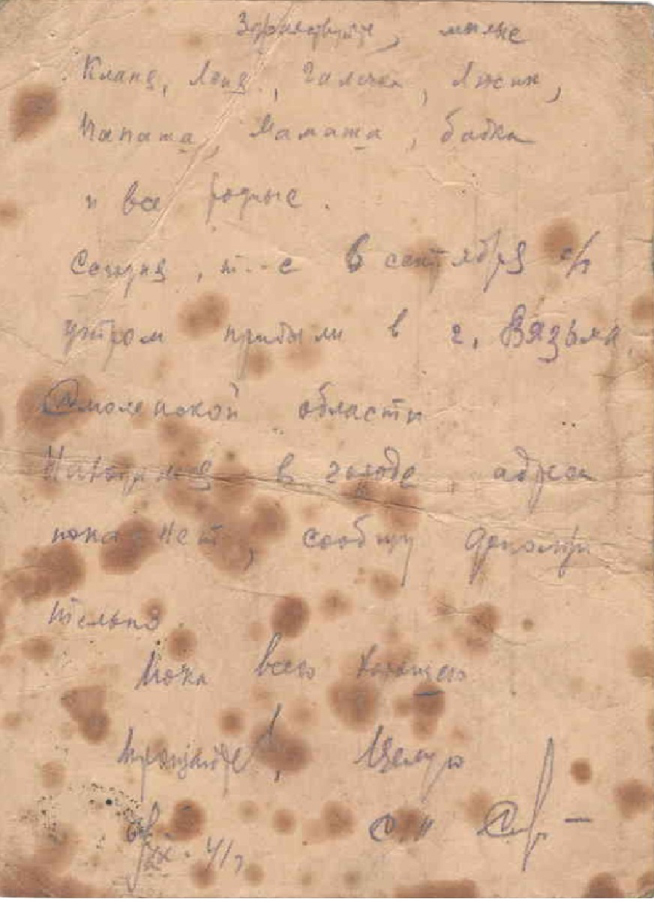 Здравствуйте, милые
Клава, Лёня, Галочка, Люсик,
Папаша, Мамаша, бабка
и все родные.
Сегодня, т.-е 6 сентября с/г
утром прибыли в г. Вязьма
Смоленской области
Находимся в городе, адреса
пока нет, сообщу дополни
тельно
Пока всего хорошего
Прощайте, Целую
6/IX-41г